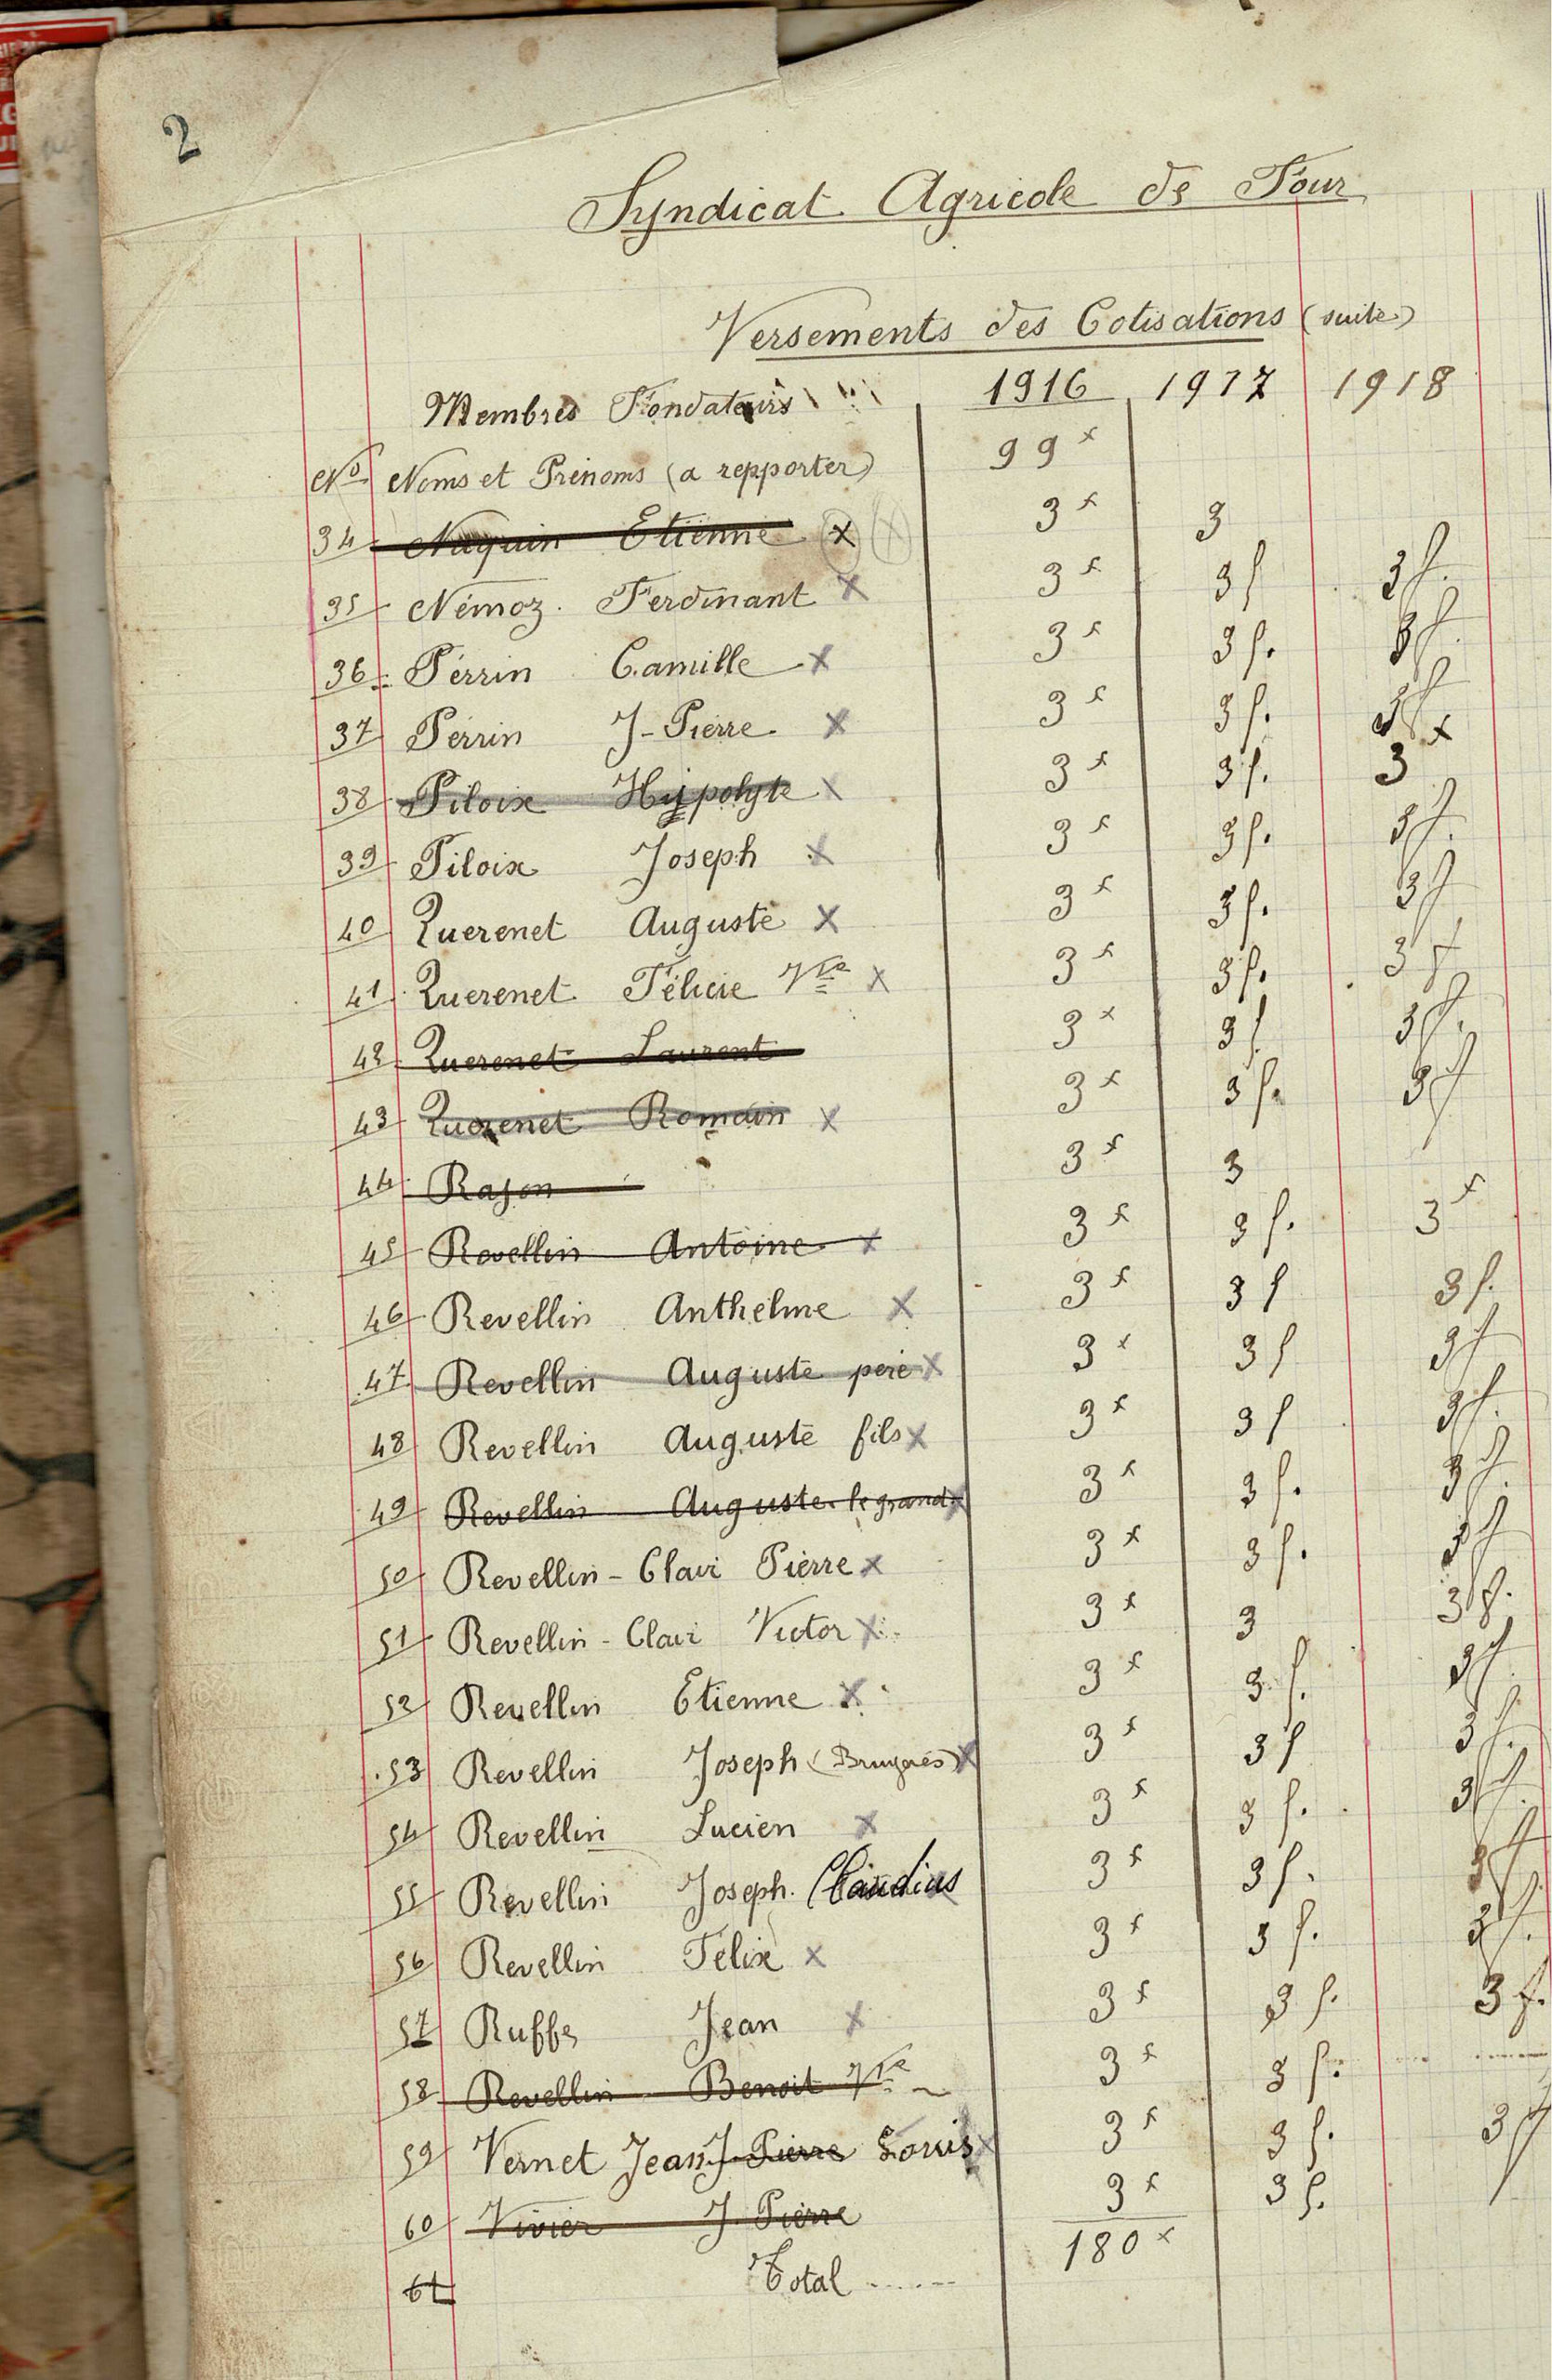 2
Syndicat Agricole de Four
Versements des Cotisations (suite)
Membres Fondateurs 1916 1917 1918
No Noms et Prénoms (a repporter) 99 f
34 Naquin Etienne x 3 f 3
35 Némoz Ferdinant x 3 f 3 f 3 f.
36 Perrin Camille x 3 f 3 f. 3 f.
37 Perrin J-Pierre x 3 f 3 f. 3 f x
38 Piloix Hypolyte x 3 f 3 f. 3
39 Piloix Joseph x 3 f 3 f. 3 f.
40 Querenet Auguste x 3 f 3 f. 3 f
41 Querenet Félicie Vve x 3 f 3 f. 3 f
42 Querenet Laurent 3 f 3 f 3 f.
43 Querenet Romain x 3 f 3 f. 3 f
44 Rajon 3 f 3
45 Revellin Antoine x 3 f 3 f. 3 f
46 Revellin Anthelme x 3 f 3 f 3 f.
47 Revellin Auguste père x 3 f 3 f 3 f
48 Revellin Auguste fils x 3 f 3 f 3 f.
49 Revellin Auguste le grand x 3 f 3 f. 3 f.
50 Revellin-Clavi Pierre x 3 f 3 f. 3 f
51 Revellin-Clavi Victor x 3 f 3 3 f.
52 Revellin Etienne x 3 f 3 f. 3 f
53 Revellin Joseph (Bruyères) x 3 f 3 f 3 f.
54 Revellin Lucien x 3 f 3 f. 3 f.
55 Revellin Joseph. Claudius 3 f 3 f. 3 f
56 Revellin Félix x 3 f 3 f. 3 f.
57 Ruffe Jean x 3 f 3 f. 3 f.
58 Revellin Benoit Vve 3 f 3 f.
59 Vernet Jean J. Pierre Louis x 3 f 3 f. 3 f
60 Vivier J. Pierre 3 f 3 f.
61 Total ...... 180 f